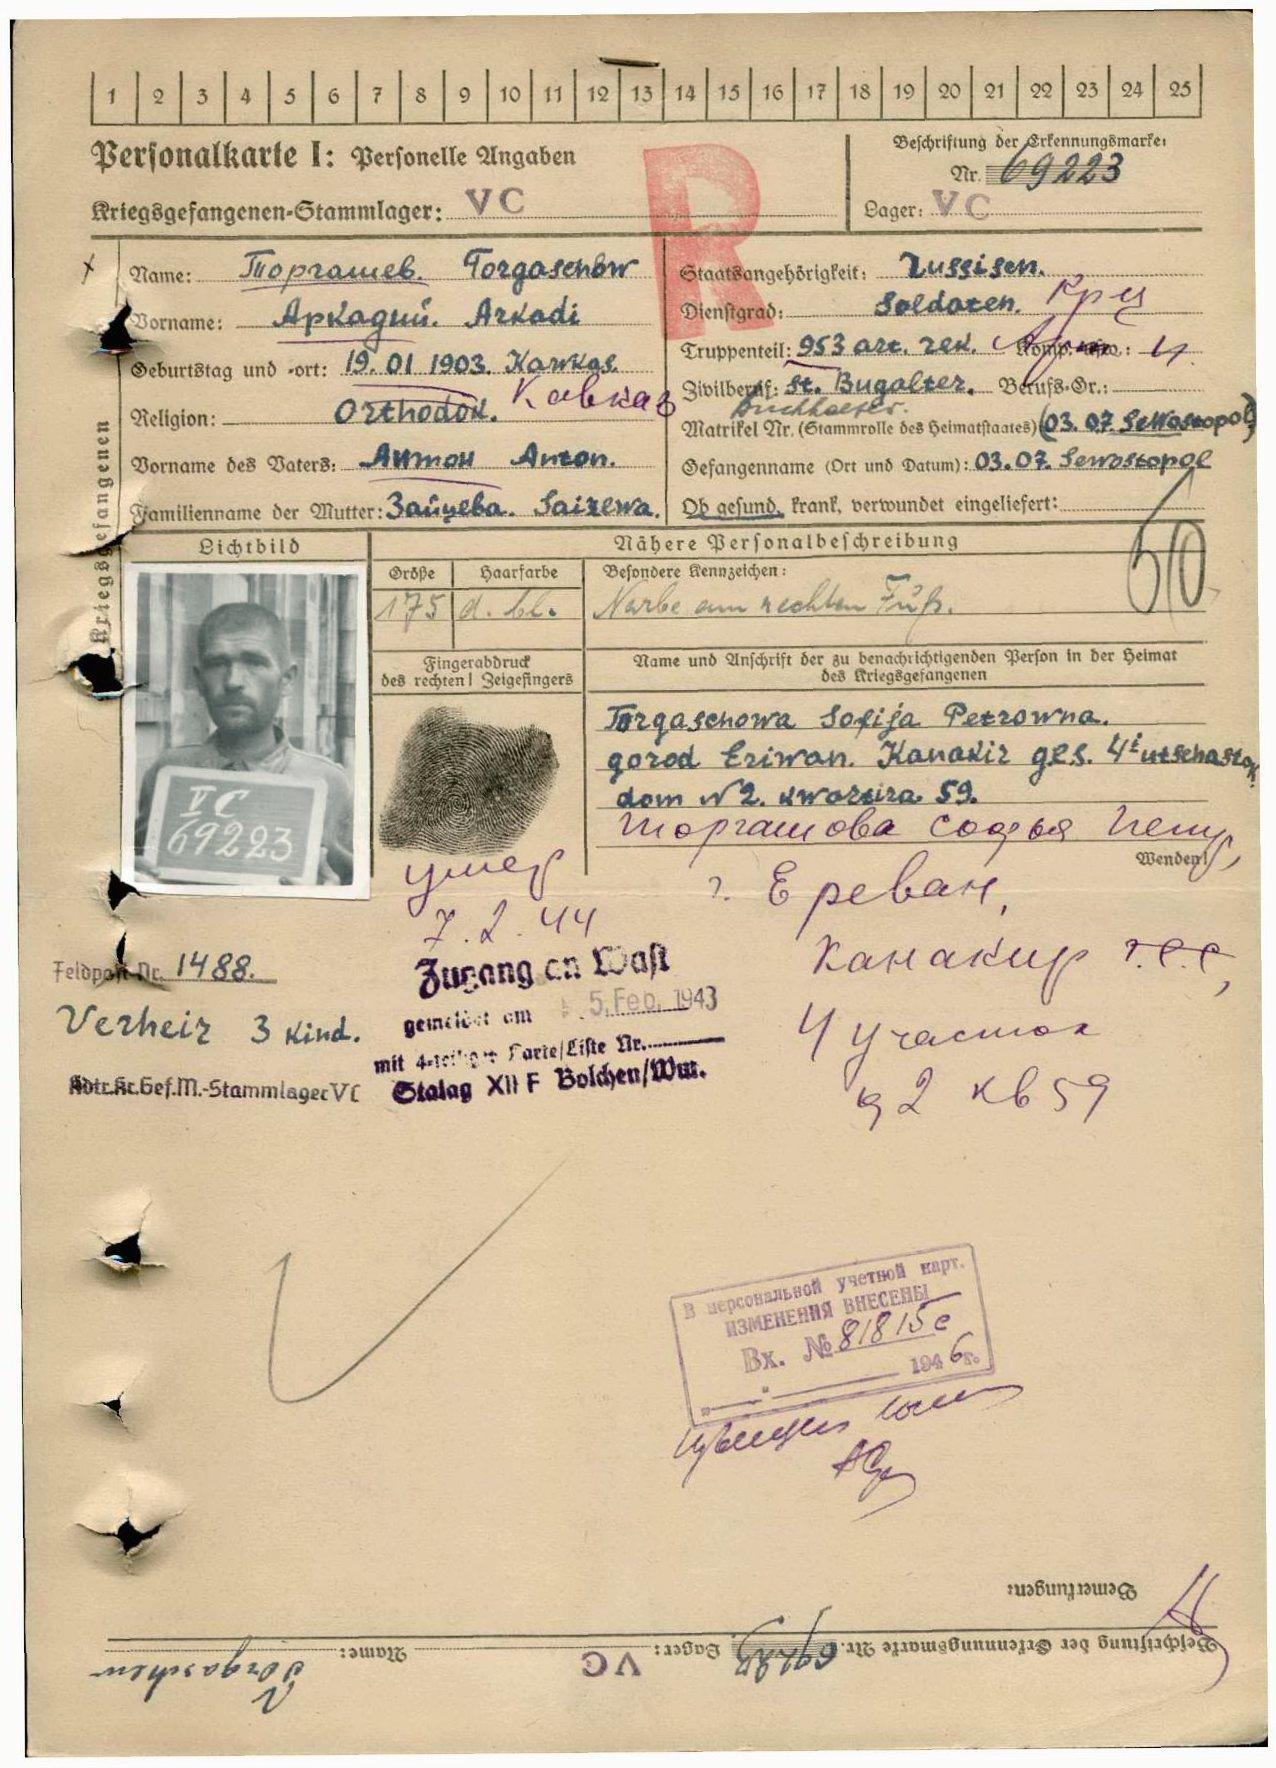 1 2 3 4 5 6 7 8 9 10 11 12 13 14 15 16 17 18 19 20 21 22 23 24 25
Personalkarte I: Personelle Angaben
Beschriftung der Erkennungsmarke:
Nr. 69223
Kriegsgefangenen-Stammlager: VC
Lager: VC
Name: Торгашев. Torgaschow
Vorname: Аркадий. Arkadi
Geburtstag und -ort: 19.01 1903. Kawkas.
Кавказ
Religion: Orthodok.
Vorname des Vaters: Антон Anton.
Familienname der Mutter: Зайцева. Saizewa.
Staatsangehörigkeit: Russisen.
Dienstgrad: Soldaten. Кр-ц
Truppenteil: 953 art. rek. Komp. usw.:
Zivilberuf: st. Bugalter. Berufs-Gr.:
Buchhalter.
Matrikel Nr. (Stammrolle des Heimatstaates) (03. 07. Sewostopol)
Gefangenname (Ort und Datum): 03.07. Sewostopol
Ob gesund, krank, verwundet eingeliefert:
Kriegsgefangenen
R
Lichtbild
Nähere Personalbeschreibung
Größe
Haarfarbe
Besondere Kennzeichen:
175
d. bl.
Narbe am rechten Fuß.
Fingerabdruck
des rechten! Zeigefingers
Name und Anschrift der zu benachrichtigenden Person in der Heimat
des Kriegsgefangenen
Torgaschowa Sofija Petrowna.
gorod Eriwan. Kanakir ges. 4i utschastok
dom N 2. kwartira 59.
Торгашова Софья Петр.
Wenden!
V C
69223
умер
7.2.44
г. Ереван,
Канакир г.е.с,
4 участок
д 2 кв 59
Feldpost-Nr. 1488.
Verheir 3 kind.
Kdtr. Kr. Gef. M.-Stammlager VC
Zugang an Wast
gemeldet am 5. Feb. 1943
mit 4-teiliger Karte/Liste Nr.
Stalag XII F Bolchen/Wm.
В персональной учетной карт.
ИЗМЕНЕНИЯ ВНЕСЕНЫ
Вх. № 81815с
1946г.
Bemerkungen:
Beschriftung der Erkennungsmarke Nr. 69223 Lager: VC Name: Torgaschew